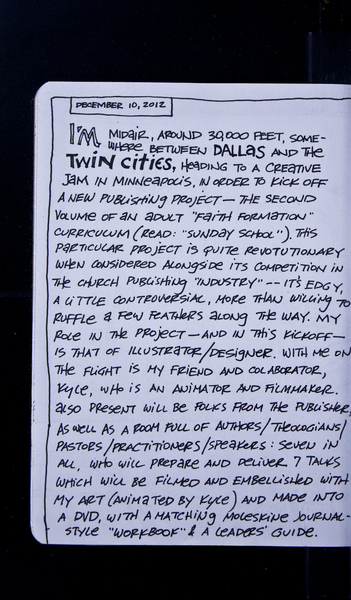 DECEMBER 10, 2012
I'M MIDAIR, AROUND 30,000 FEET, SOME-
WHERE BETWEEN DALLAS AND THE
TWIN CITIES, HEADING TO A CREATIVE
JAM IN MINNEAPOLIS, IN ORDER TO KICK OFF
A NEW PUBLISHING PROJECT — THE SECOND
VOLUME OF AN ADULT "FAITH FORMATION"
CURRICULUM (READ: "SUNDAY SCHOOL"). THIS
PARTICULAR PROJECT IS QUITE REVOLUTIONARY
WHEN CONSIDERED ALONGSIDE ITS COMPETITION IN
THE CHURCH PUBLISHING "INDUSTRY" -- IT'S EDGY,
A LITTLE CONTROVERSIAL, MORE THAN WILLING TO
RUFFLE A FEW FEATHERS ALONG THE WAY. MY
ROLE IN THE PROJECT — AND IN THIS KICKOFF —
IS THAT OF ILLUSTRATOR/DESIGNER. WITH ME ON
THE FLIGHT IS MY FRIEND AND COLLABORATOR,
KYLE, WHO IS AN ANIMATOR AND FILMMAKER.
ALSO PRESENT WILL BE FOLKS FROM THE PUBLISHER,
AS WELL AS A ROOM FULL OF AUTHORS/THEOLOGIANS/
PASTORS/PRACTITIONERS/SPEAKERS: SEVEN IN
ALL, WHO WILL PREPARE AND DELIVER 7 TALKS
WHICH WILL BE FILMED AND EMBELLISHED WITH
MY ART (ANIMATED BY KYLE) AND MADE INTO
A DVD, WITH A MATCHING MOLESKINE JOURNAL-
STYLE "WORKBOOK" & A LEADERS' GUIDE.